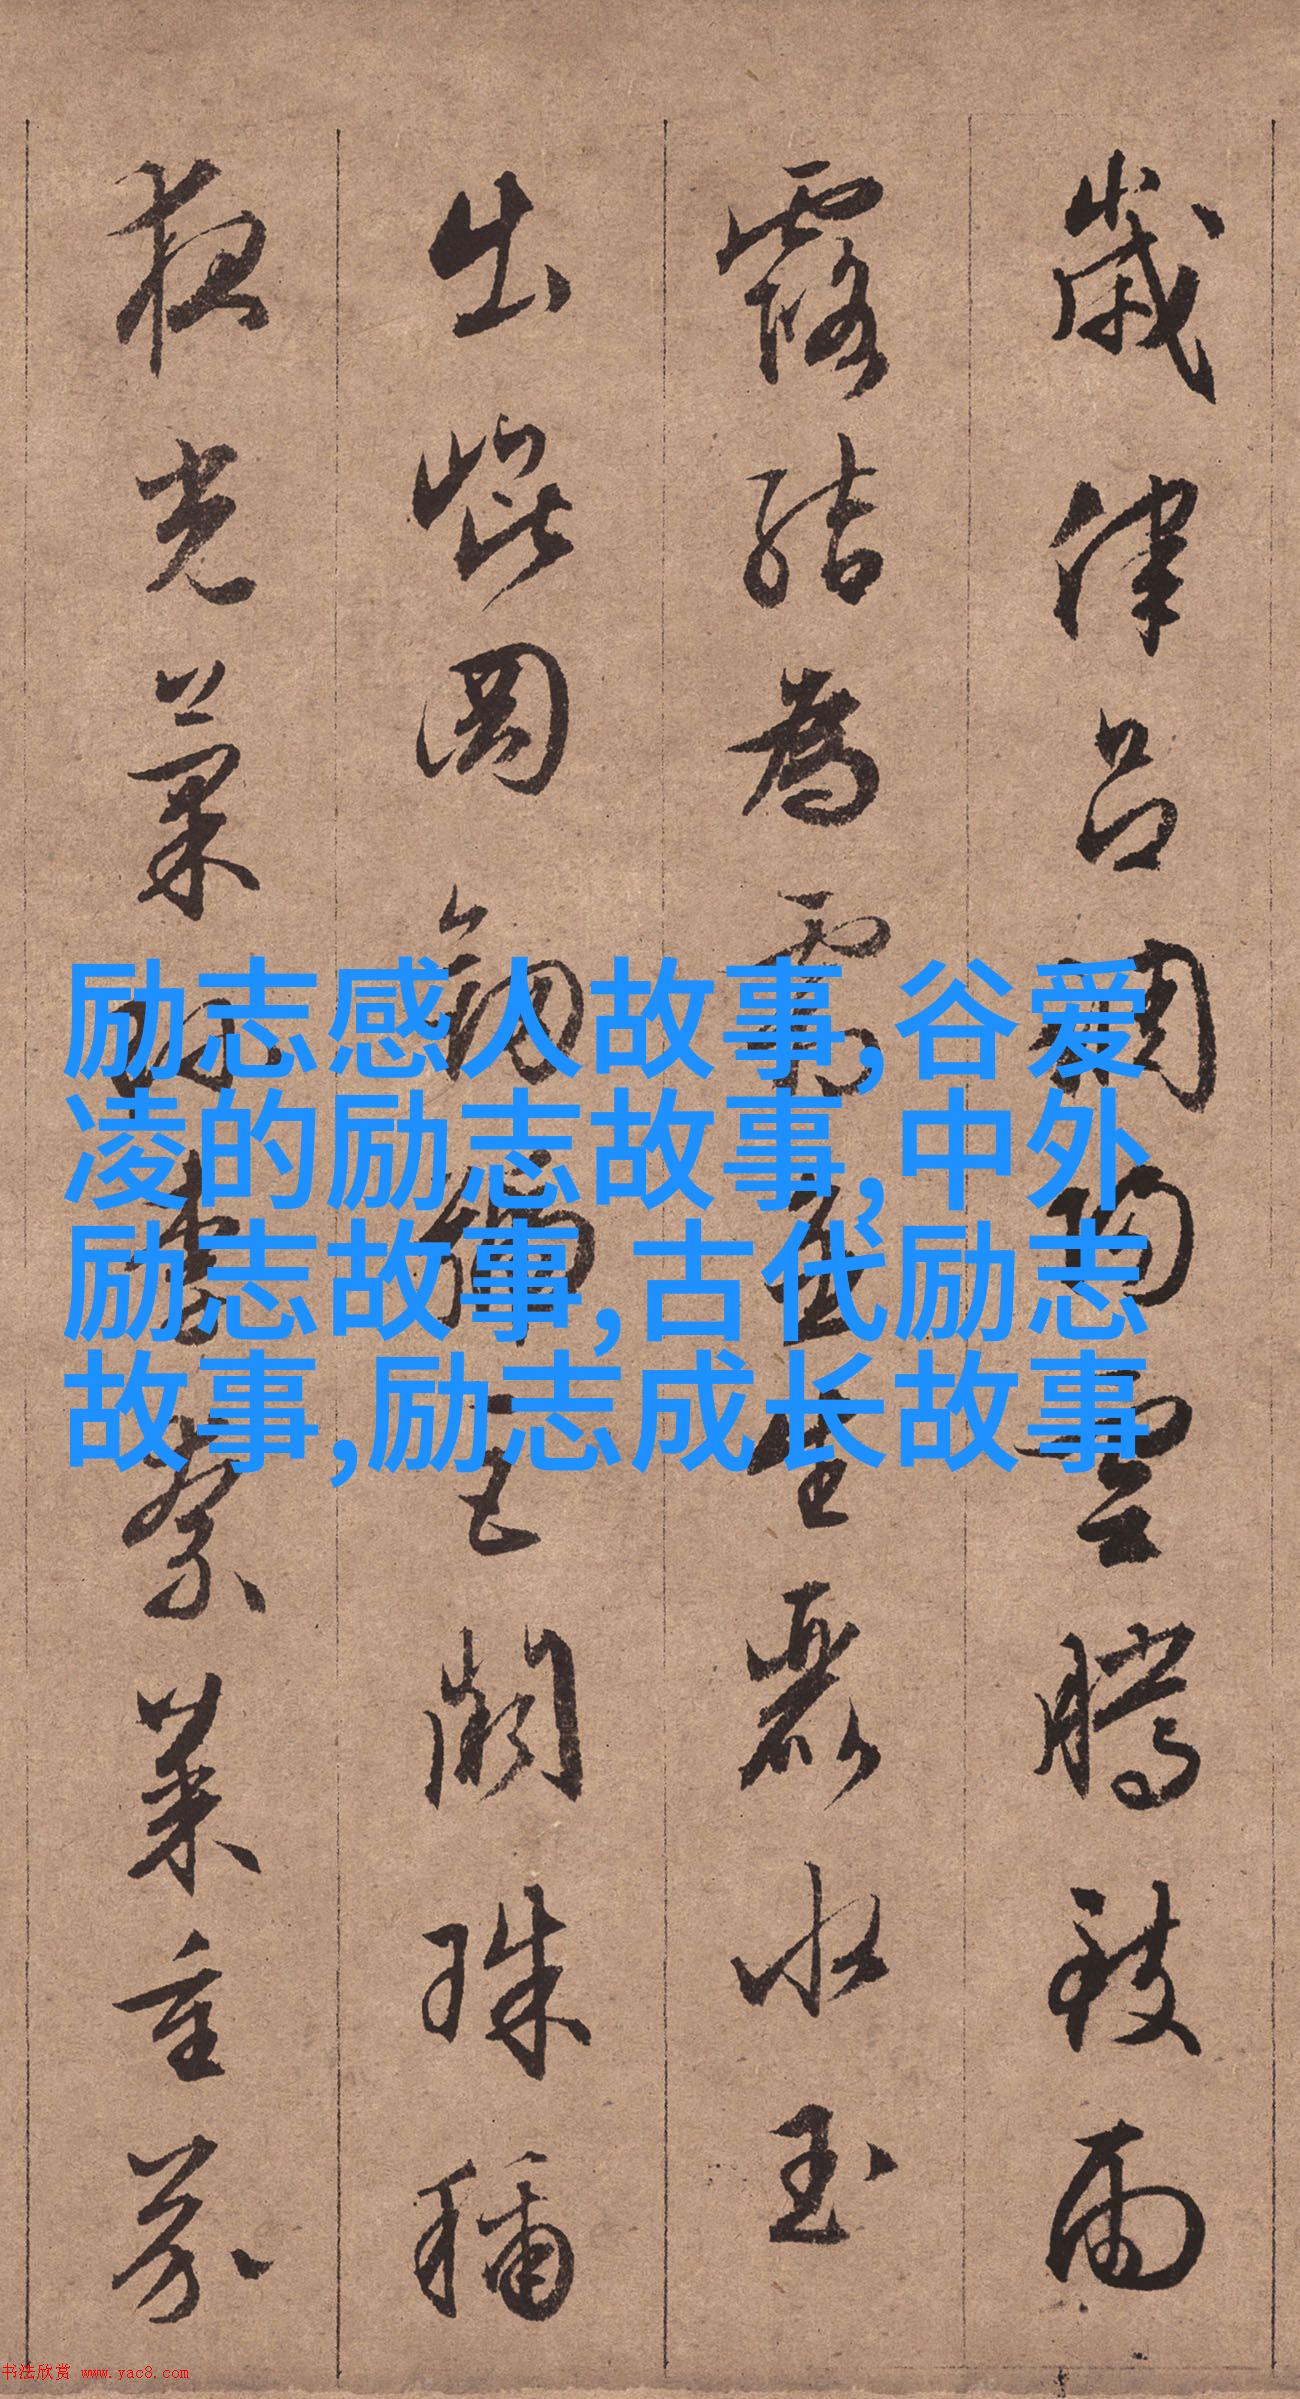 歲律呂調陽雲騰致雨
露結為霜金生麗水玉
出崐岡劍號巨闕珠稱
夜光菓珍李柰菜重芥
励志感人故事,谷爱
凌的励志故事,中外
励志故事,古代励志
故事,励志成长故事
书法欣赏 www.yac8.com